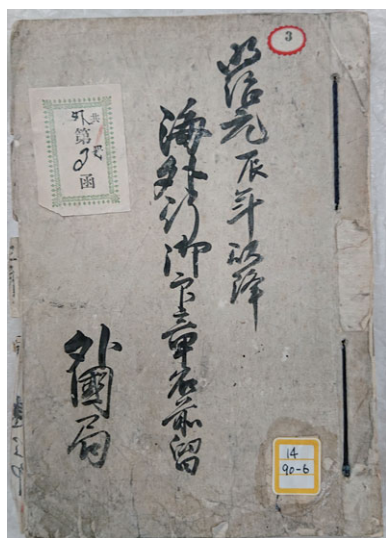 3
明治元辰年以降
海外行御印章名前留
外國局
外
第
函
14
90-6